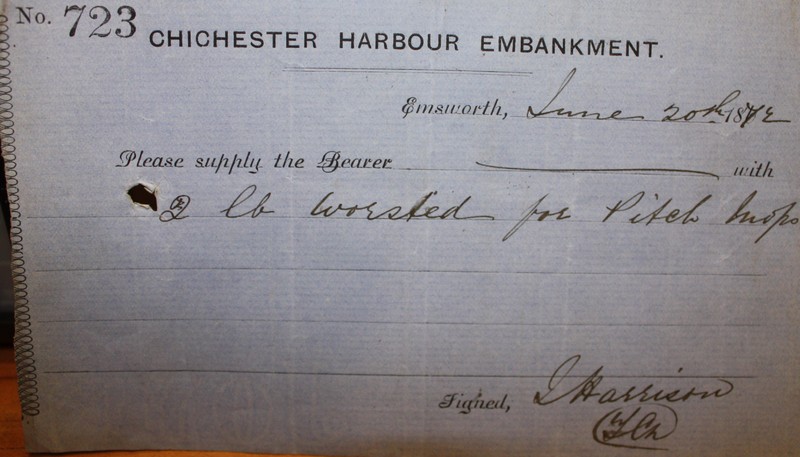 No. 723
CHICHESTER HARBOUR EMBANKMENT.
Emsworth, June 20th 1872
Please supply the Bearer with
2 lb worsted for Pitch Mops
Signed, Harrison